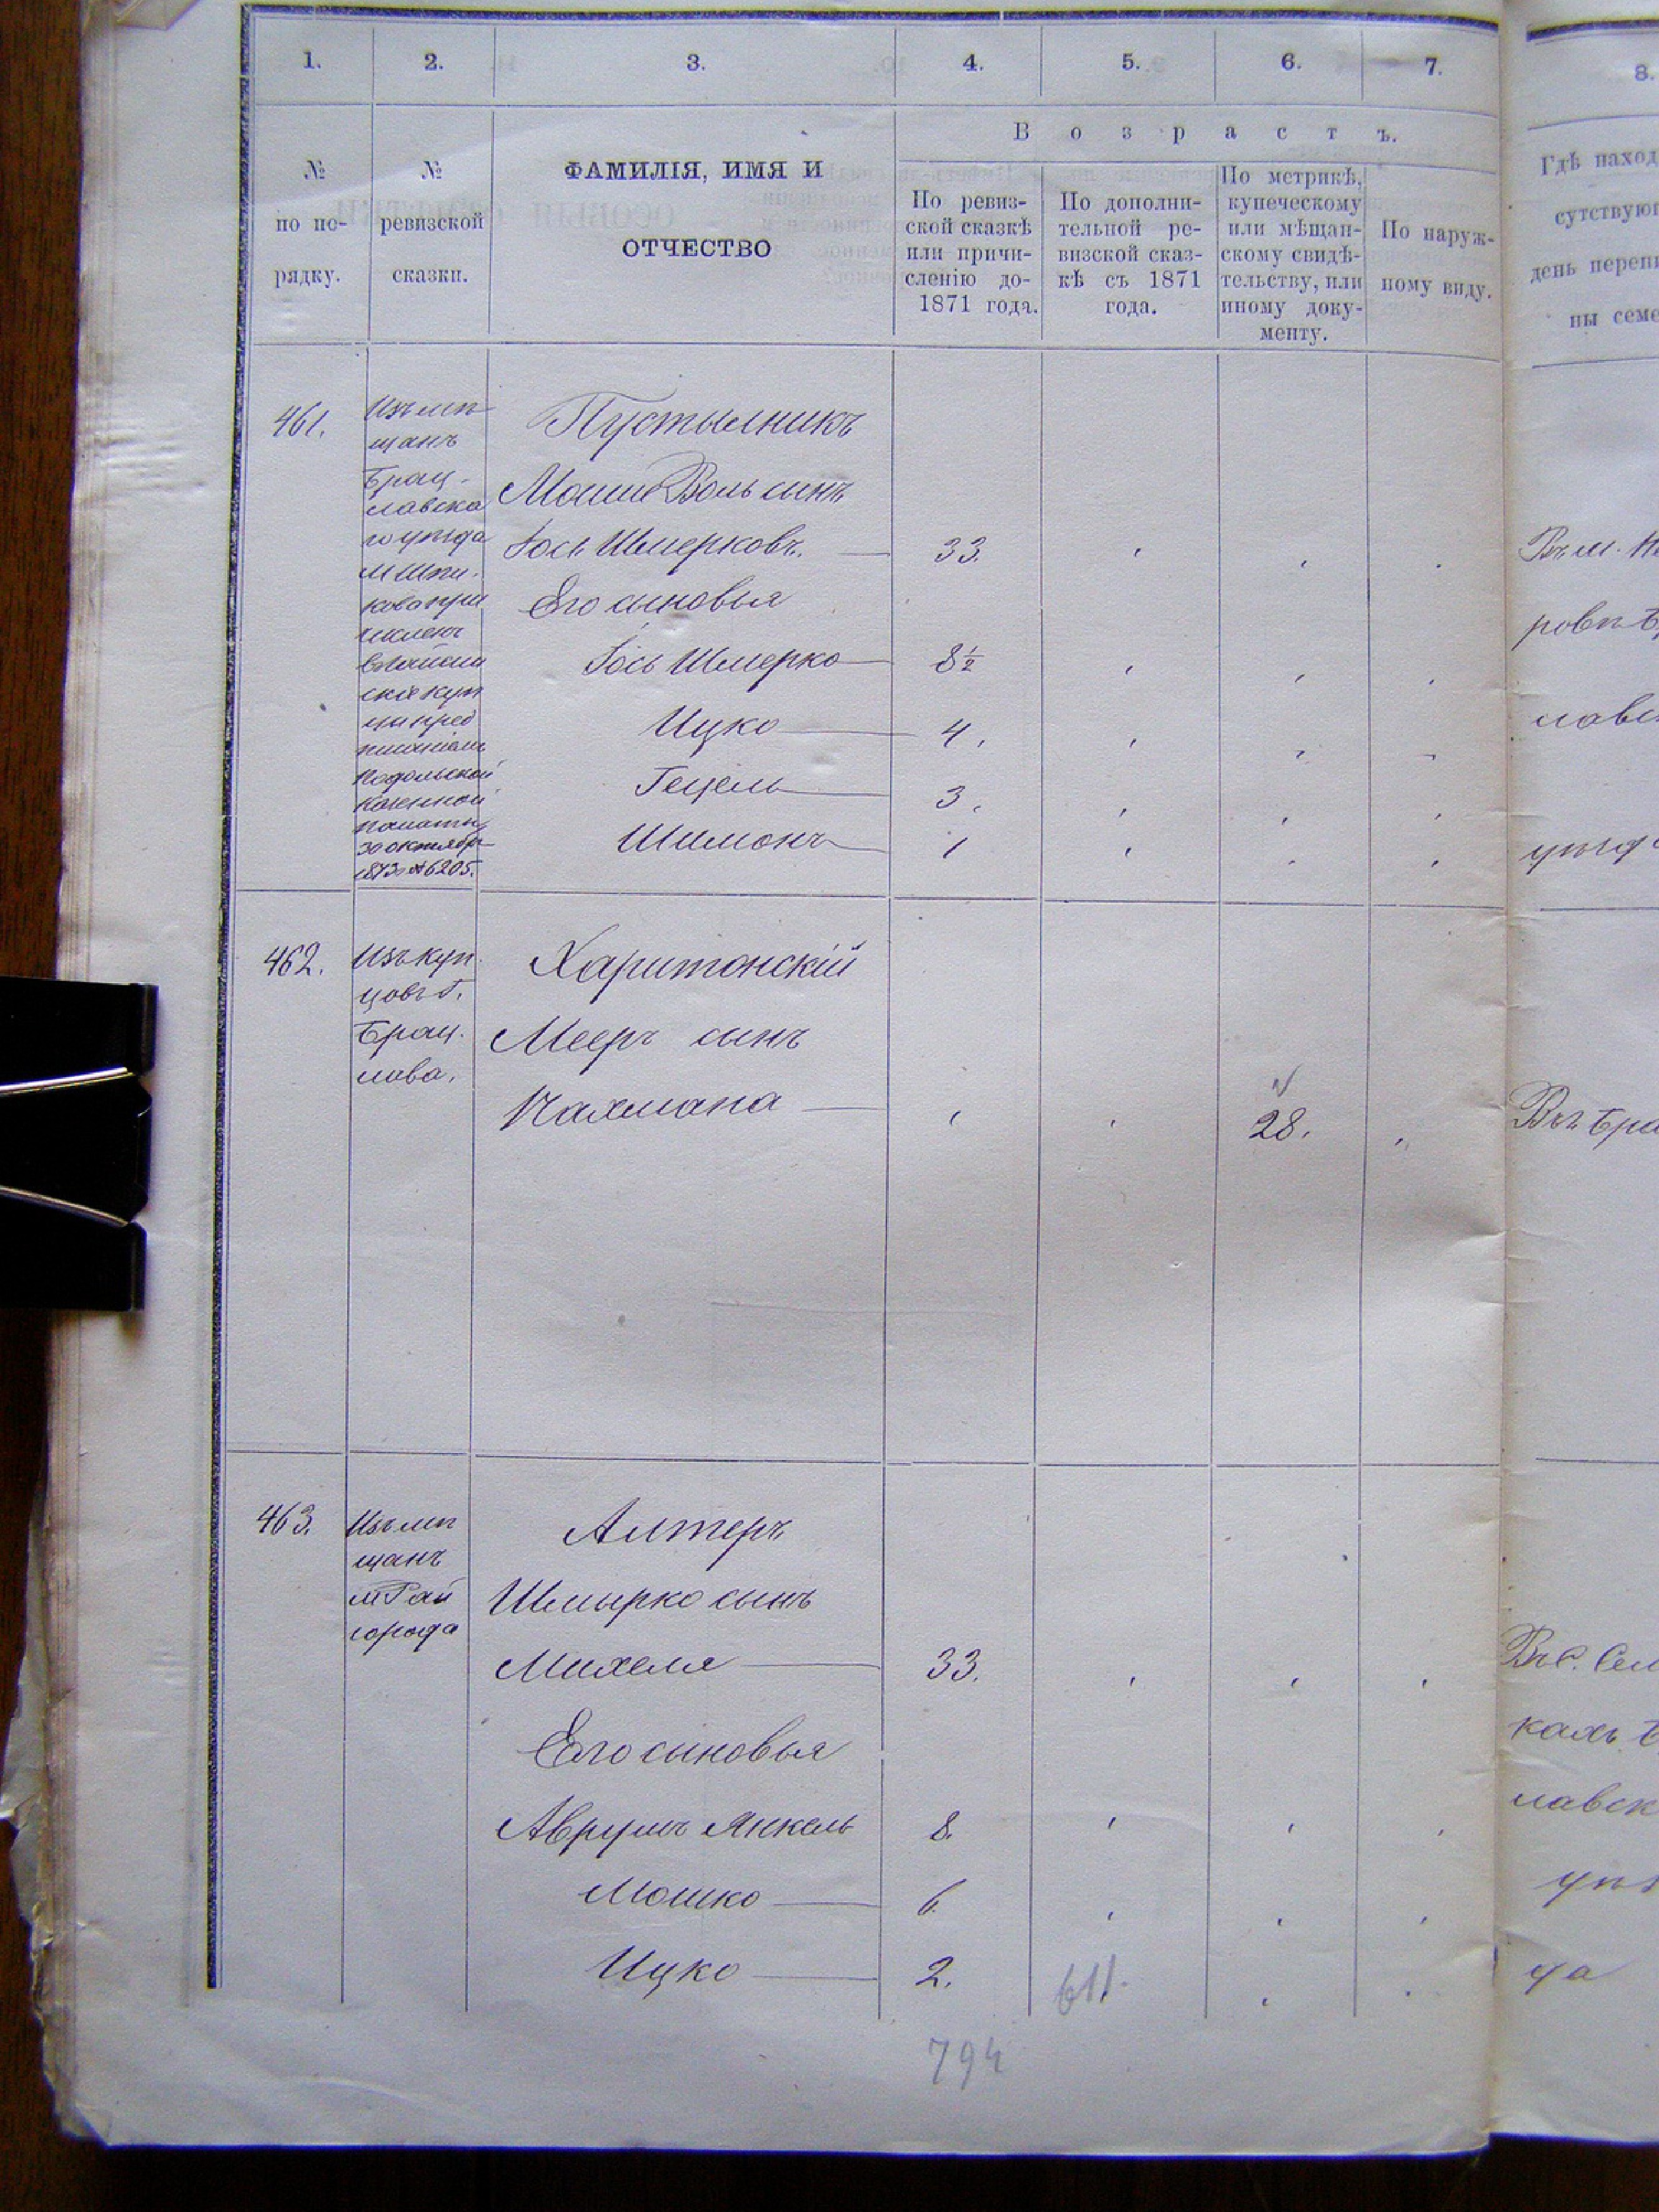 1. 2. 3. 4. 5. 6. 7. 8.
В о з р а с т ъ.
№
по по-
рядку.
№
ревизской
сказки.
ФАМИЛІЯ, ИМЯ И
ОТЧЕСТВО
По ревиз-
ской сказкѣ
или причи-
сленію до
1871 года.
По дополни-
тельной ре-
визской сказ-
кѣ съ 1871
года.
По метрикѣ,
купеческому
или мѣщан-
скому свидѣ-
тельству, или
иному доку-
менту.
По наруж-
ному виду.
Гдѣ наход
сутствую
день переп
ны семе
461.
Изъ мѣ
щанъ
Брац-
лавска
го уѣзда
м Шпи-
кова при
численъ
скіе куп
цы пред
писаніемъ
Подольской
казенной
палаты
30 октября
1873 № 6205.
Пустылникъ
Мошко Воль сынъ
Іось Шмерковъ. 33.
Его сыновья
Іось Шмерко 8 1/2
Ицко 4.
Гецель 3.
Шимонъ 1
Въ м.
ровѣ Б
лавс
уѣзд
462.
Изъ куп
цовъ г.
Брац-
лава.
Харитонскій
Мееръ сынъ
Нахмана 28.
Въ Бра
463.
Изъ мѣ
щанъ
м Рай
города
Алтеръ
Шмырко сынъ
Михеля 33.
Его сыновья
Аврумъ Янкель 8.
Мошко 6.
Ицко 2.
Въ С. Сел
кахъ Б
лавск
уѣз
да
611.
794